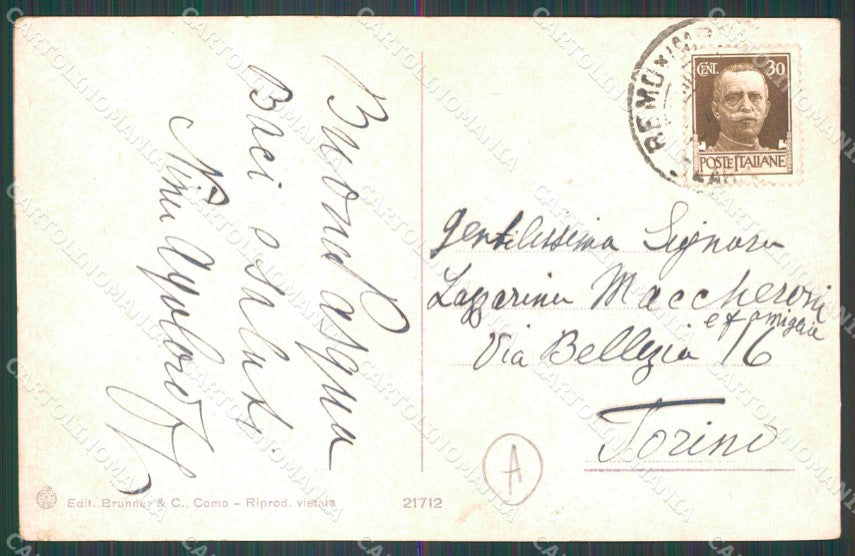 Buona Pasqua
Baci e saluti
Nini
CENT. 30
POSTE ITALIANE
REMO
Gentilissima Signora
Lazzarina Maccheroni
e famiglia
Via Bellezia 16
Torino
A
Edit. Brunner & C., Como - Riprod. vietata
21712
CARTOLINOMANIA